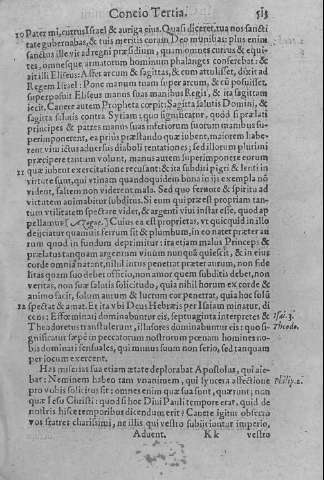 Concio Tertia. 513
10 Pater mi, currus Israel & auriga eius. Quasi diceret, tua nos sancti
tate gubernabas, & tuis meritis coram Deo munibas: plus enim
sanctus ille vir ad regni præsidium, quam omnes currus & equi-
tes, omnesque armatorum hominum phalanges conferebat: &
ait illi Eliseus: Affer arcum & sagittas, & cum attulisset, dixit ad
Regem Israel: Pone manum tuam super arcum, & cum posuisset,
superposuit Eliseus manus suas manibus Regis, & ita sagittam
iecit. Canere autem Propheta cœpit: Sagitta salutis Domini, &
sagitta salutis contra Syriam: quo significatur, quod si prælati
principes & patres manus suas inferiorum suorum manibus su-
perimponerent, ea prius præstando quæ iubent, maiorem habe-
rent vim ictus adversus diaboli tentationes; sed illorum plurimi
præcipere tantum volunt, manus autem superimponere eorum
11 quæ iubent exercitatione recusant: & ita subditi pigri & lenti in
virtute sunt, qui utinam quandoquidem bona in iis exempla nō
vident, saltem non viderent mala. Sed quo fervore & spiritu ad
virtutem animabitur subditus. Si eum qui præest propriam tan-
tum utilitatem spectare videt, & argenti vivi instar esse, quod ap
pellamus Cuius ea est proprietas, ut quicquid in illo
deijciatur quamvis ferrum sit & plumbum, in eo natet præter au
rum quod in fundum deprimitur: ita etiam malus Princeps &
prælatus tanquam argentum vivum nunquā quiescit, & in eius
corde omnia natant, nihil intus penetrat præter aurum, non fide
litas quam suo debet officio, non amor quem subditis debet, non
veritas, non suæ salutis solicitudo, quia nihil horum ex corde &
animo facit, solum aurum & lucrum cor penetrat, quia hoc solū
12 spectat & amat. Et ita vbi Deus Hebræis per Isaiam minatur, di
cens: Effœminati dominabuntur eis, septuaginta interpretes & Isai. 3.
Theodoretus transtulerunt, illusores dominabuntur eis: quo si- Theodo.
gnificatur sæpe in peccatorum nostrorum pœnam homines no-
bis dominari sensuales, qui munus suum non serio, sed tanquam
per iocum exercent.
Has miserias sua etiam ætate deplorabat Apostolus, qui aie-
bat: Neminem habeo tam unanimem, qui syncera affectione Philip. 2.
pro vobis solicitus sit: omnes enim quæ sua sunt, quærunt; non
quæ Iesu Christi: quod si hoc Divi Pauli tempore erat, quid de
nostris hisce temporibus dicendum erit? Canete igitur obsecro
vos fratres charissimi, ne illis qui vestro subijciuntur imperio,
Advent. K k vestro